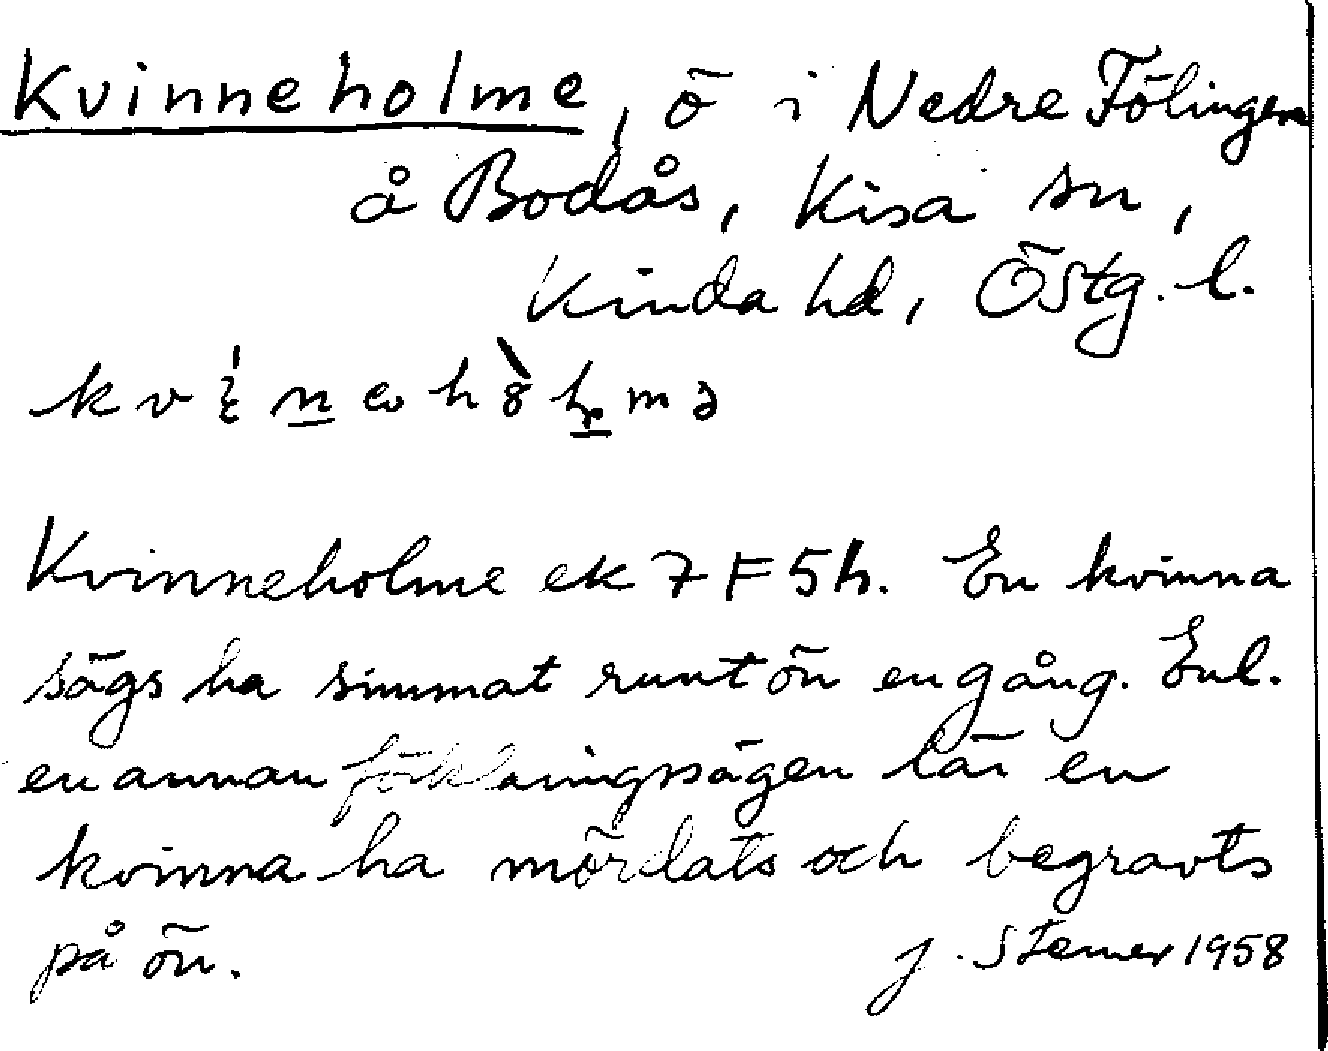 Kvinneholme, ö i Nedre Fölingen
å Bodås, Kisa sn,
Kinda hd, Östg. l.
Kvinneholme ek 7 F 5h. En kvinna
sägs ha simmat runt ön en gång. Enl.
en annan förklaringssägen lär en
kvinna ha mördats och begravts
på ön. J. Stemer 1958